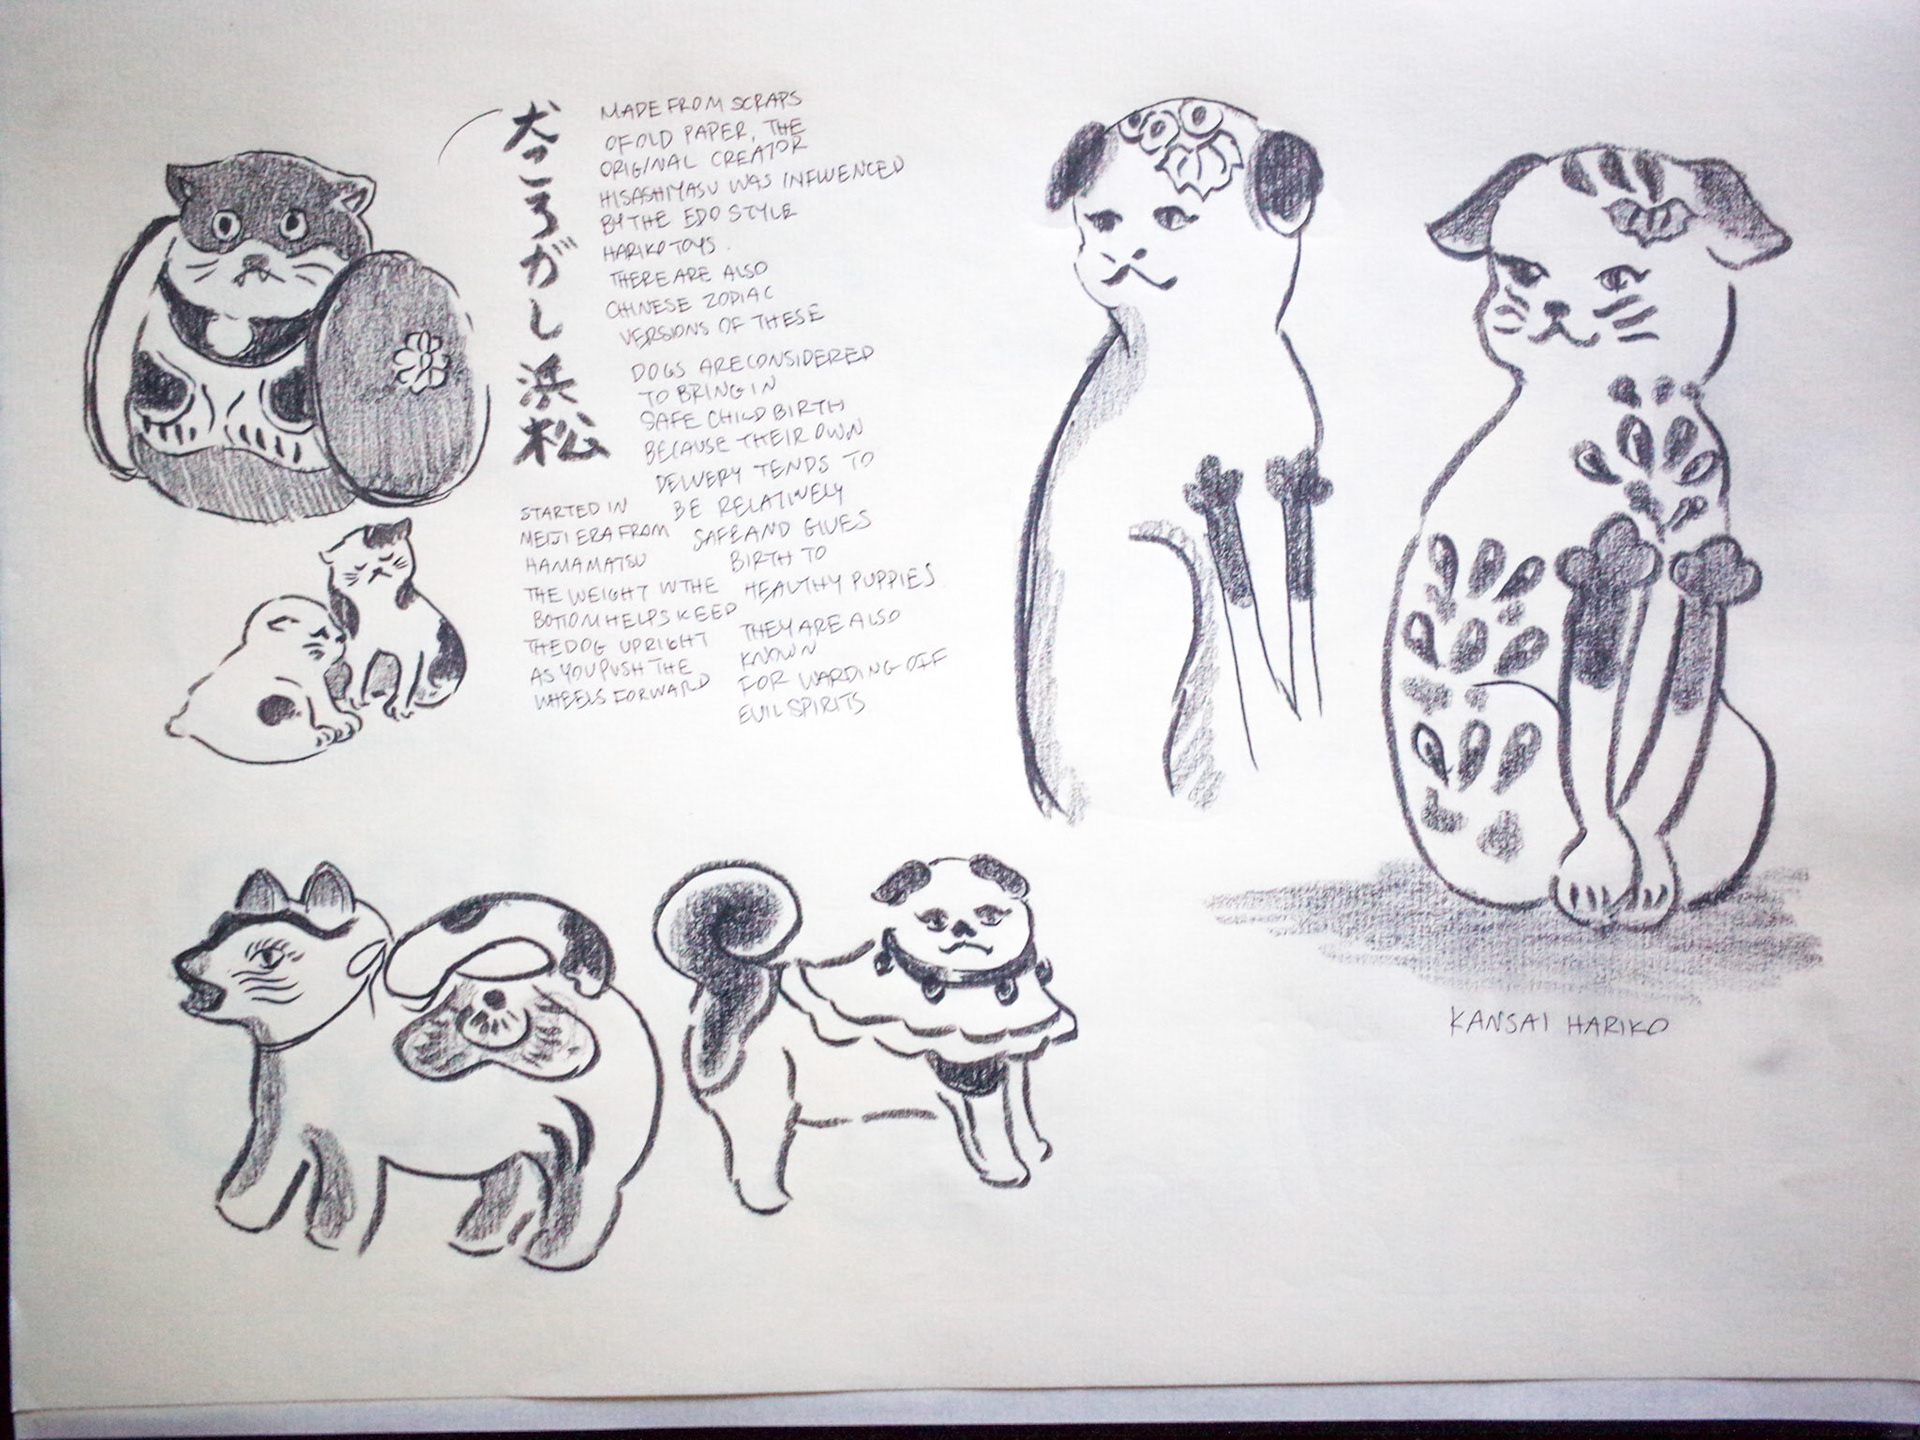 犬ころがし浜松
MADE FROM SCRAPS
OF OLD PAPER, THE
ORIGINAL CREATOR
HISASHIYASU WAS INFLUENCED
BY THE EDO STYLE
HARIKO TOYS.
THERE ARE ALSO
CHINESE ZODIAC
VERSIONS OF THESE
DOGS ARE CONSIDERED
TO BRING IN
SAFE CHILD BIRTH
BECAUSE THEIR OWN
DELIVERY TENDS TO
BE RELATIVELY
SAFE AND GIVES
BIRTH TO
HEALTHY PUPPIES
THEY ARE ALSO
KNOWN
FOR WARDING OFF
EVIL SPIRITS
STARTED IN
MEIJI ERA FROM
HAMAMATSU
THE WEIGHT IN THE
BOTTOM HELPS KEEP
THE DOG UPRIGHT
AS YOU PUSH THE
WHEELS FORWARD
KANSAI HARIKO